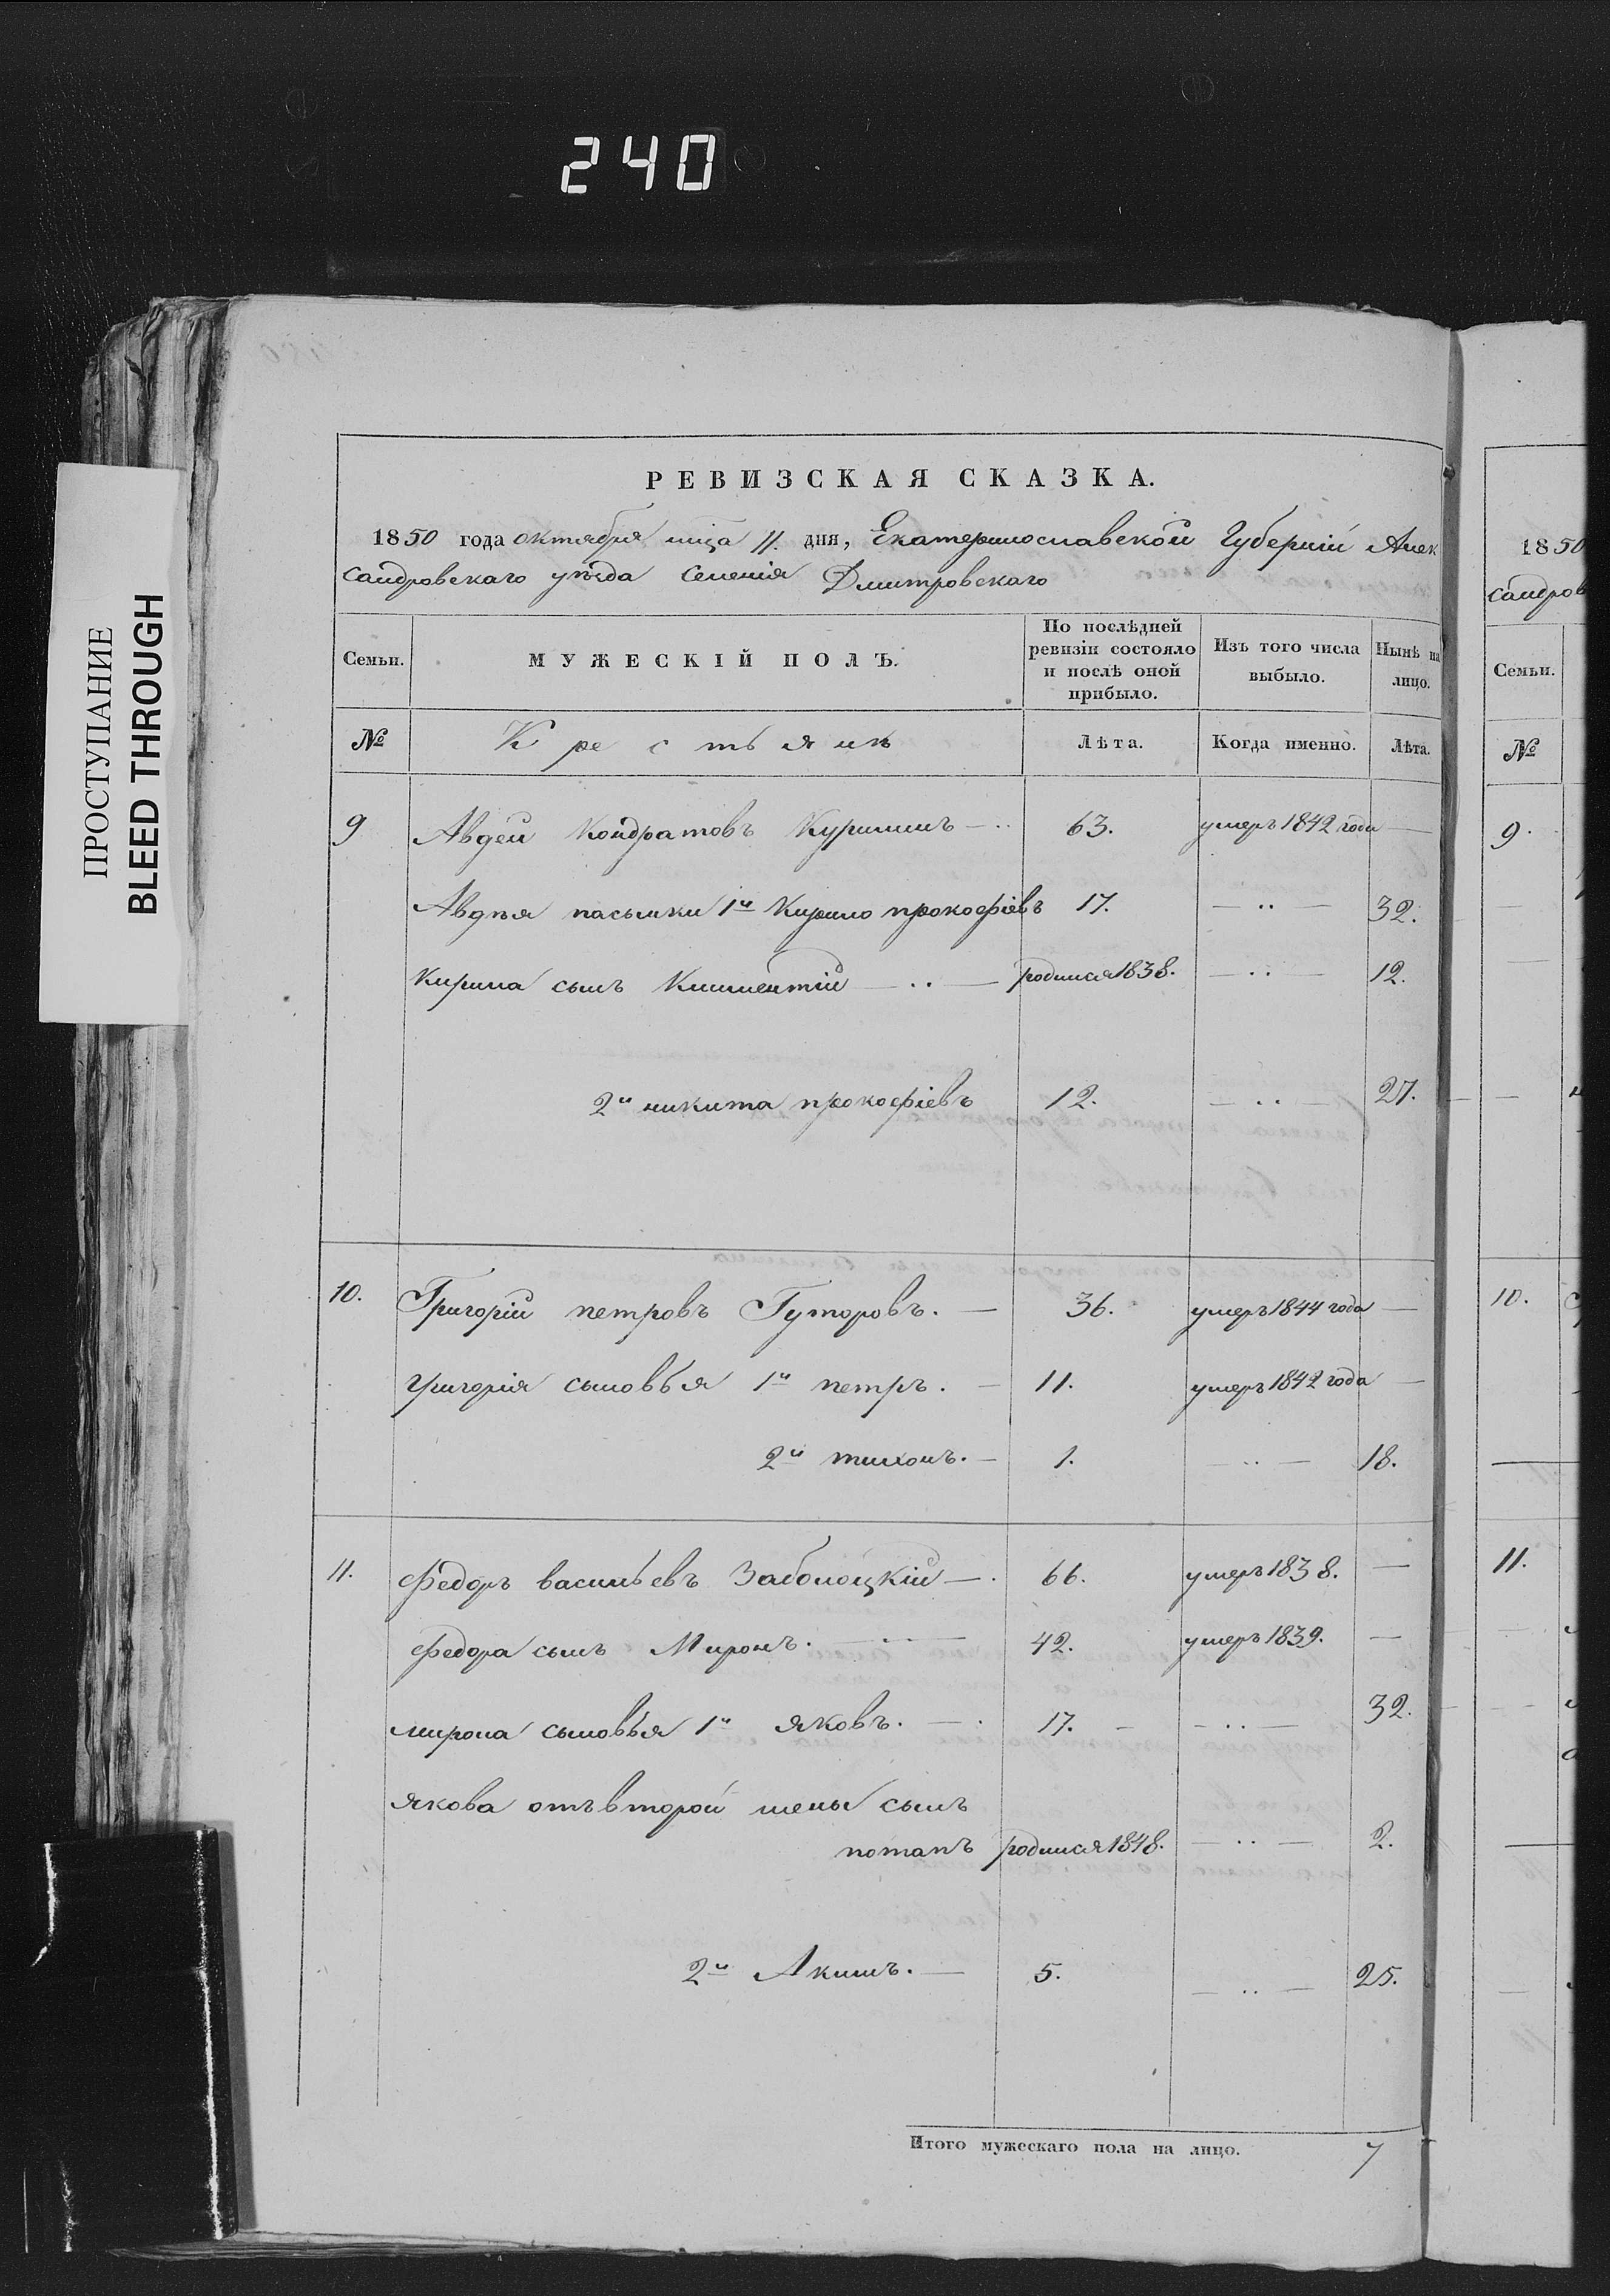 240
ПРОСТУПАНИЕ
BLEED THROUGH
РЕВИЗСКАЯ СКАЗКА.
1850 года октября мца 11. дня, Екатеринославской Губерніи Алек
сандровскаго уѣзда Селенія Дмитровскаго
Семьи. МУЖЕСКІЙ ПОЛЪ. По послѣдней ревизіи состояло и послѣ оной прибыло. Изъ того числа выбыло. Нынѣ на лицо.
№ Крестьянъ Лѣта. Когда именно. Лѣта.
9 Авдей Кондратовъ Курилинъ — .. 63. умеръ 1842 года —
Авдѣя пасынки 1й Кирило прокофіевъ 17. — .. — 32.
Кирила сынъ Климентій — .. — родился 1838. — .. — 12.
2й никита прокофіевъ 12. — .. — 27.
10. Григорій петровъ Гуторовъ. — 36. умеръ 1844 года —
григорія сыновья 1й петръ. — 11. умеръ 1842 года —
2й тихонъ. — 1. — .. — 18.
11. Федоръ васильевъ Заболоцкій — . 66. умеръ 1838. —
Федора сынъ Миронъ. — .. — 42. умеръ 1839. —
мирона сыновья 1й яковъ. — . 17. — — .. — 32.
якова отъ второй жены сынъ
потапъ родился 1848. — .. — 2.
2й Акимъ. — 5. — .. — 25.
Итого мужескаго пола на лицо. 7
1850
сандров
Семьи.
№
9.
10.
11.